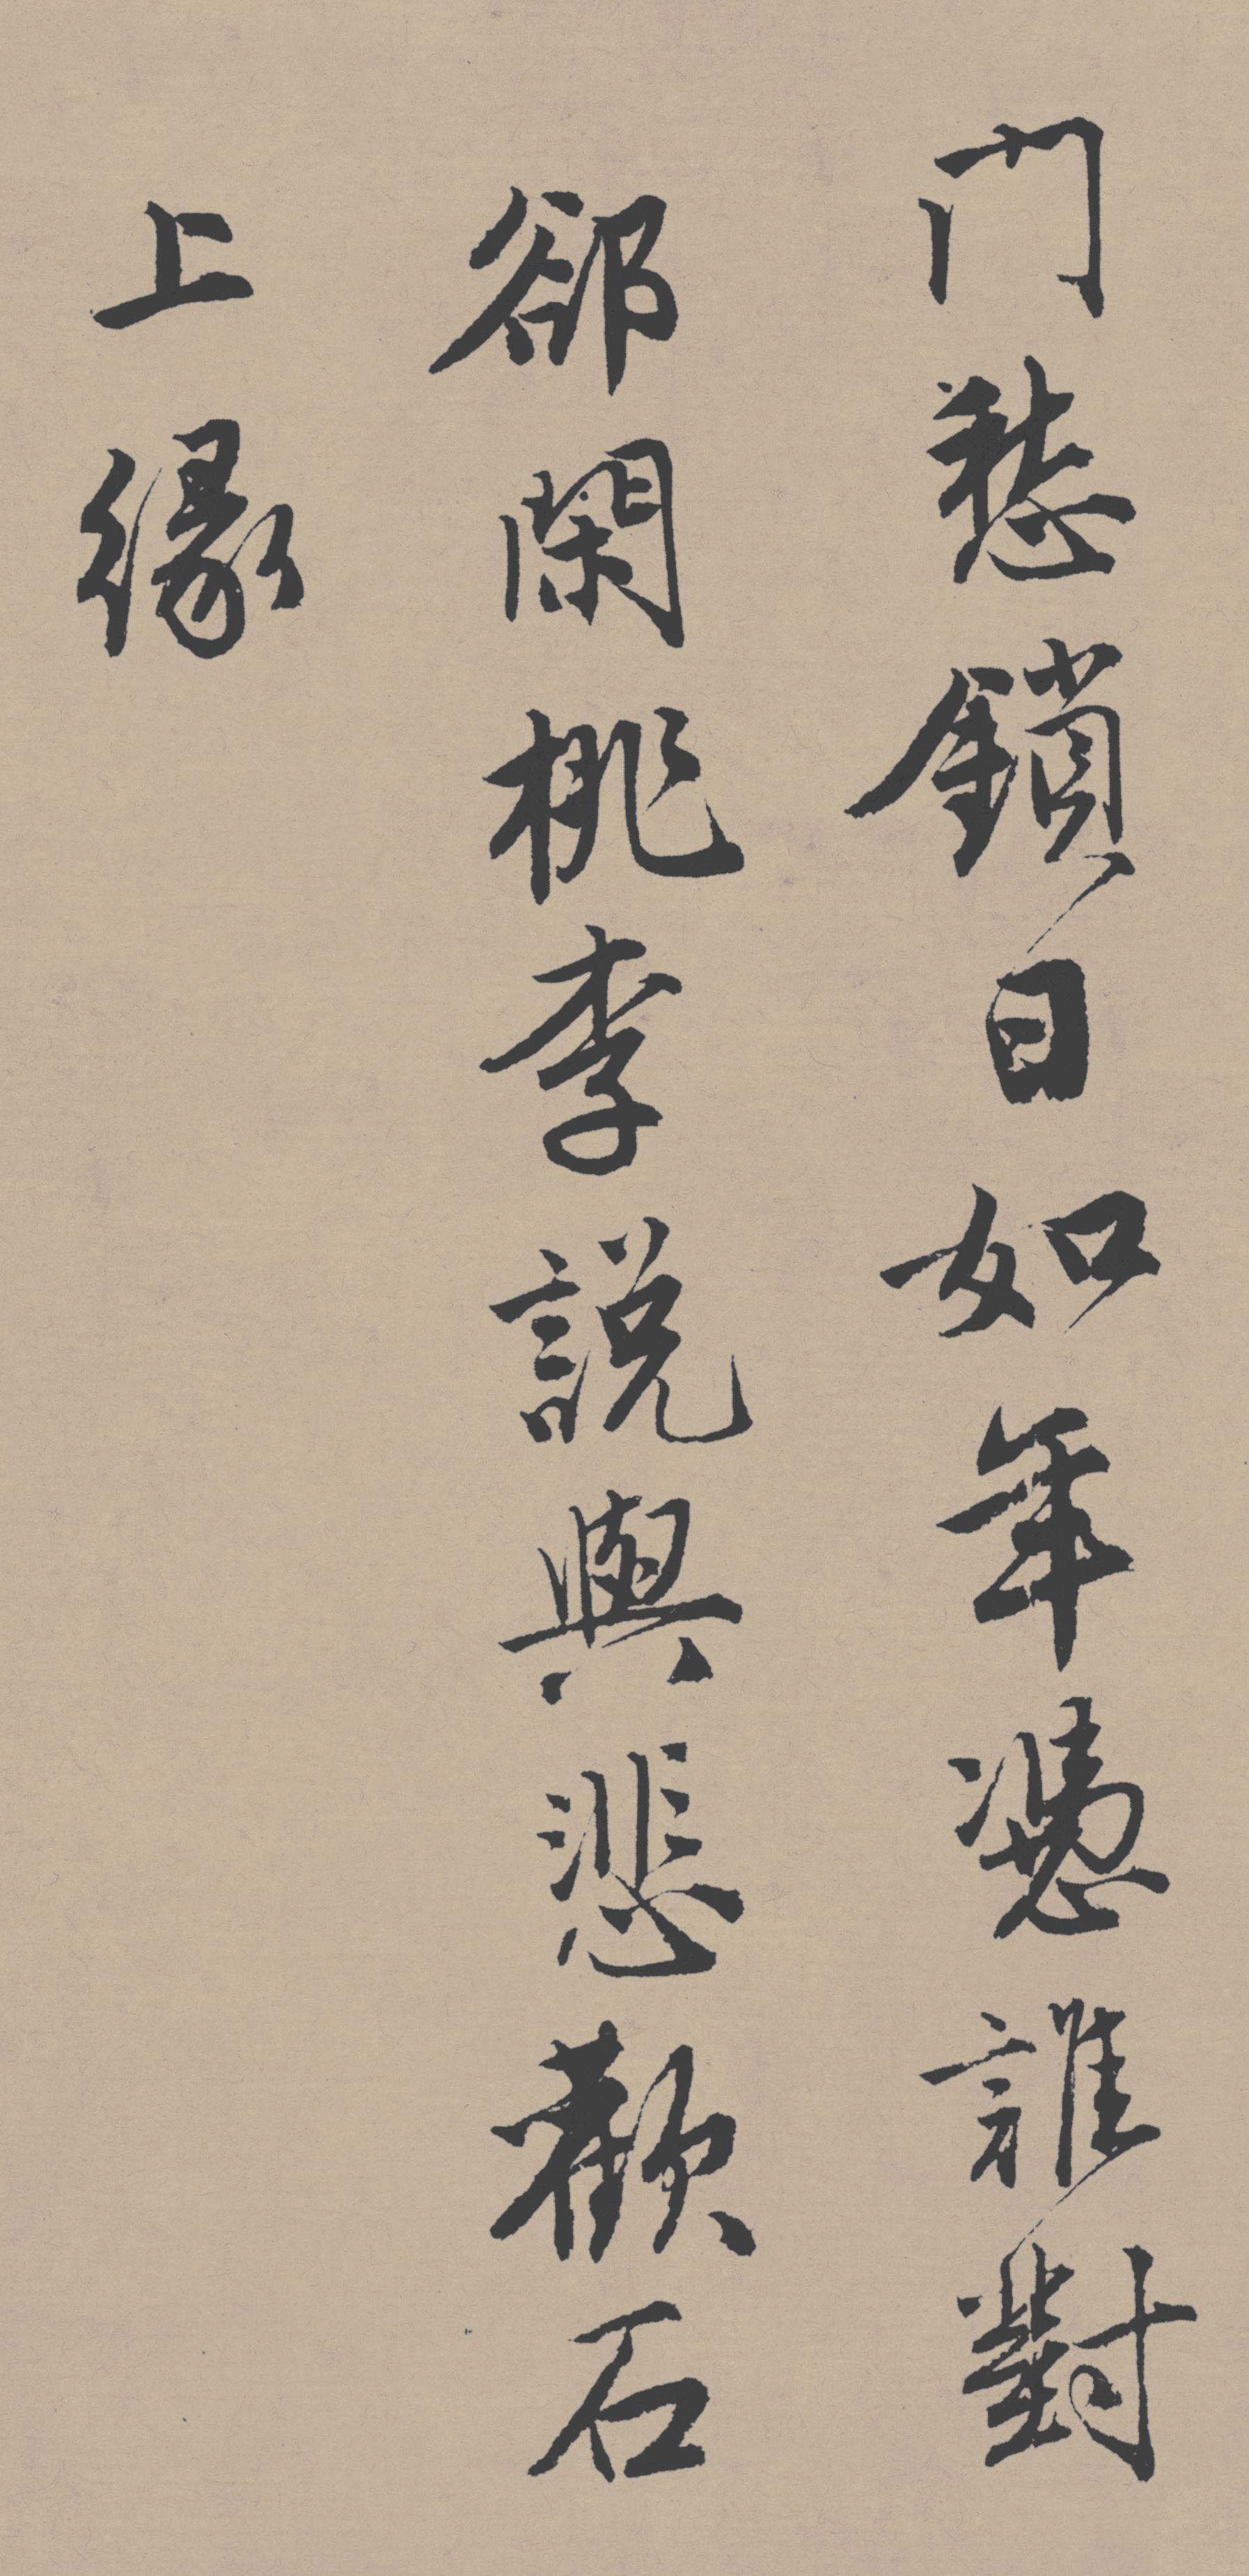 門愁鎖日如年憑誰對
郤閑桃李說與悲歡石
上緣